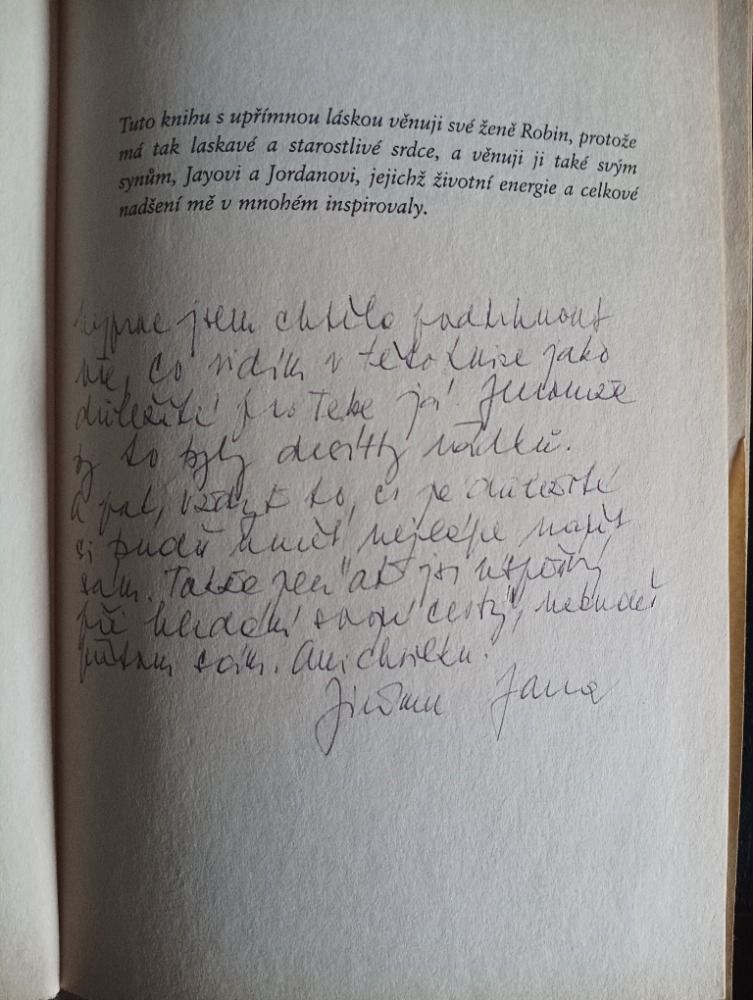 Tuto knihu s upřímnou láskou věnuji své ženě Robin, protože
má tak laskavé a starostlivé srdce, a věnuji ji také svým
synům, Jayovi a Jordanovi, jejichž životní energie a celkové
nadšení mě v mnohém inspirovaly.
jsem chtěla podtrhnout
vše, co vidím v této knize jako
důležité pro Tebe já.
by to byly desítky řádků.
A pak, vždyť to, co je důležité
si budeš umět nejlépe najít
sám. Takže jen "ať jsi úspěšný
při hledání svojí cesty", nebudeš
přitom sám. Ani chvilku.
Jana